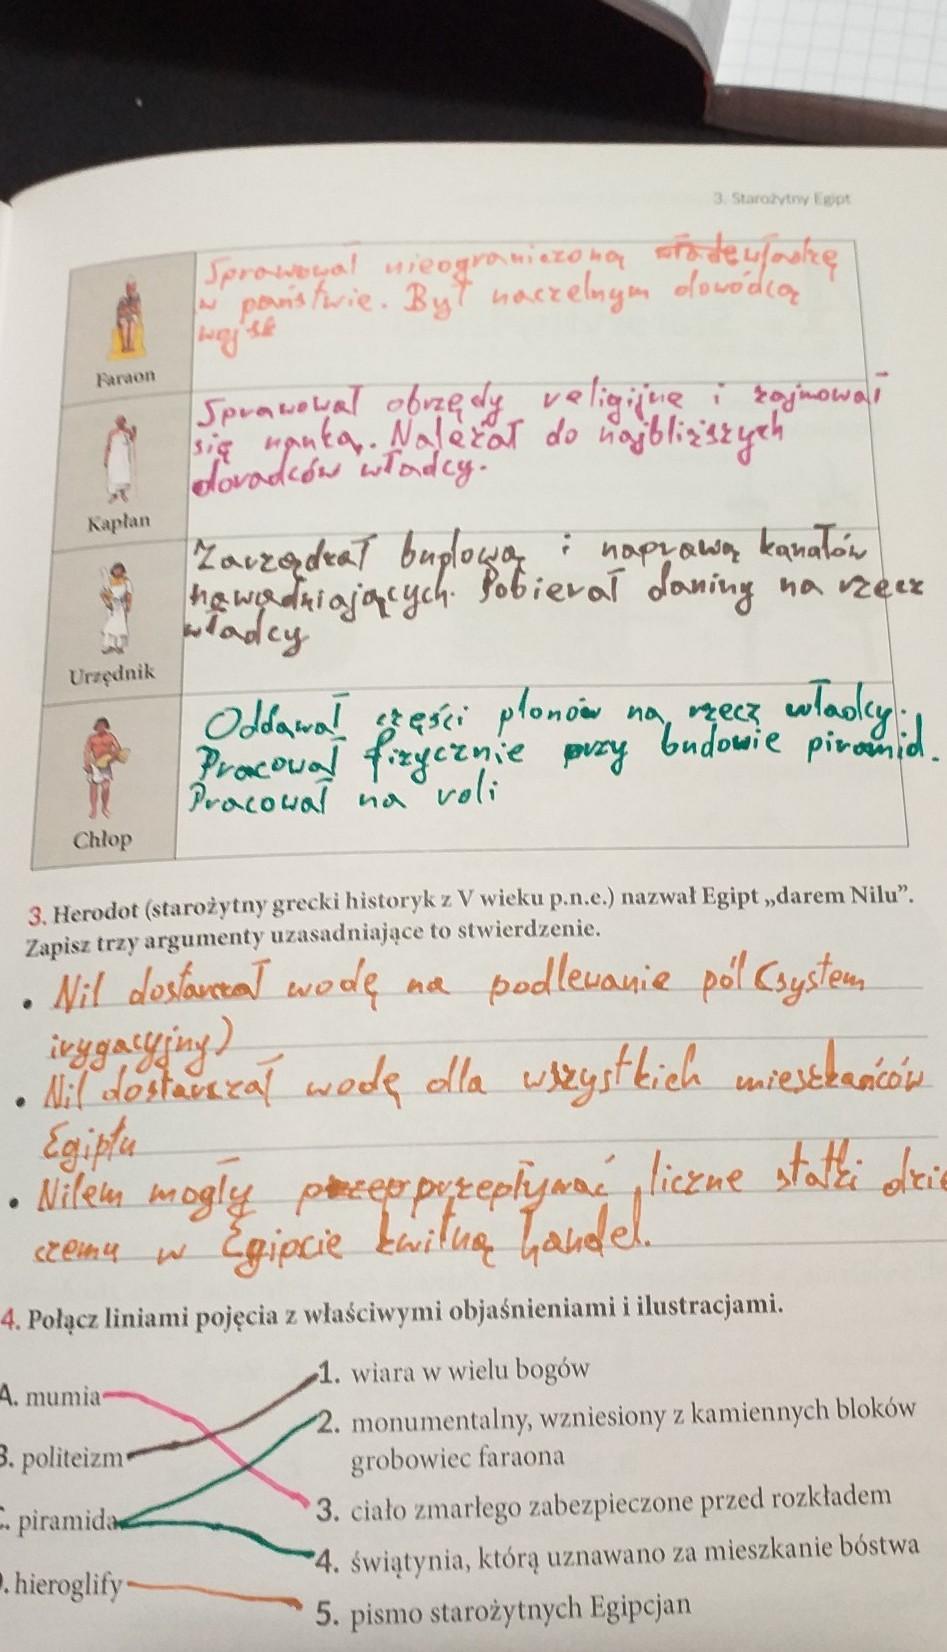 3. Starożytny Egipt
Sprawował nieograniczoną władzę
w państwie. Był naczelnym dowódcą
wojsk
Faraon
Sprawował obrzędy religijne i zajmował
się nauką. Należał do najbliższych
doradców władcy.
Kapłan
Zarządzał budową i naprawą kanałów
nawadniających. Pobierał daniny na rzecz
władcy
Urzędnik
Oddawał części plonów na rzecz władcy.
Pracował fizycznie przy budowie piramid.
Pracował na roli
Chłop
3. Herodot (starożytny grecki historyk z V wieku p.n.e.) nazwał Egipt „darem Nilu”.
Zapisz trzy argumenty uzasadniające to stwierdzenie.
• Nil dostarczał wodę na podlewanie pól (system
irygacyjny)
• Nil dostarczał wodę dla wszystkich mieszkańców
Egiptu
• Nilem mogły przepływać liczne statki dzię
czemu w Egipcie kwitną handel.
4. Połącz liniami pojęcia z właściwymi objaśnieniami i ilustracjami.
A. mumia
B. politeizm
C. piramida
D. hieroglify
1. wiara w wielu bogów
2. monumentalny, wzniesiony z kamiennych bloków
grobowiec faraona
3. ciało zmarłego zabezpieczone przed rozkładem
4. świątynia, którą uznawano za mieszkanie bóstwa
5. pismo starożytnych Egipcjan